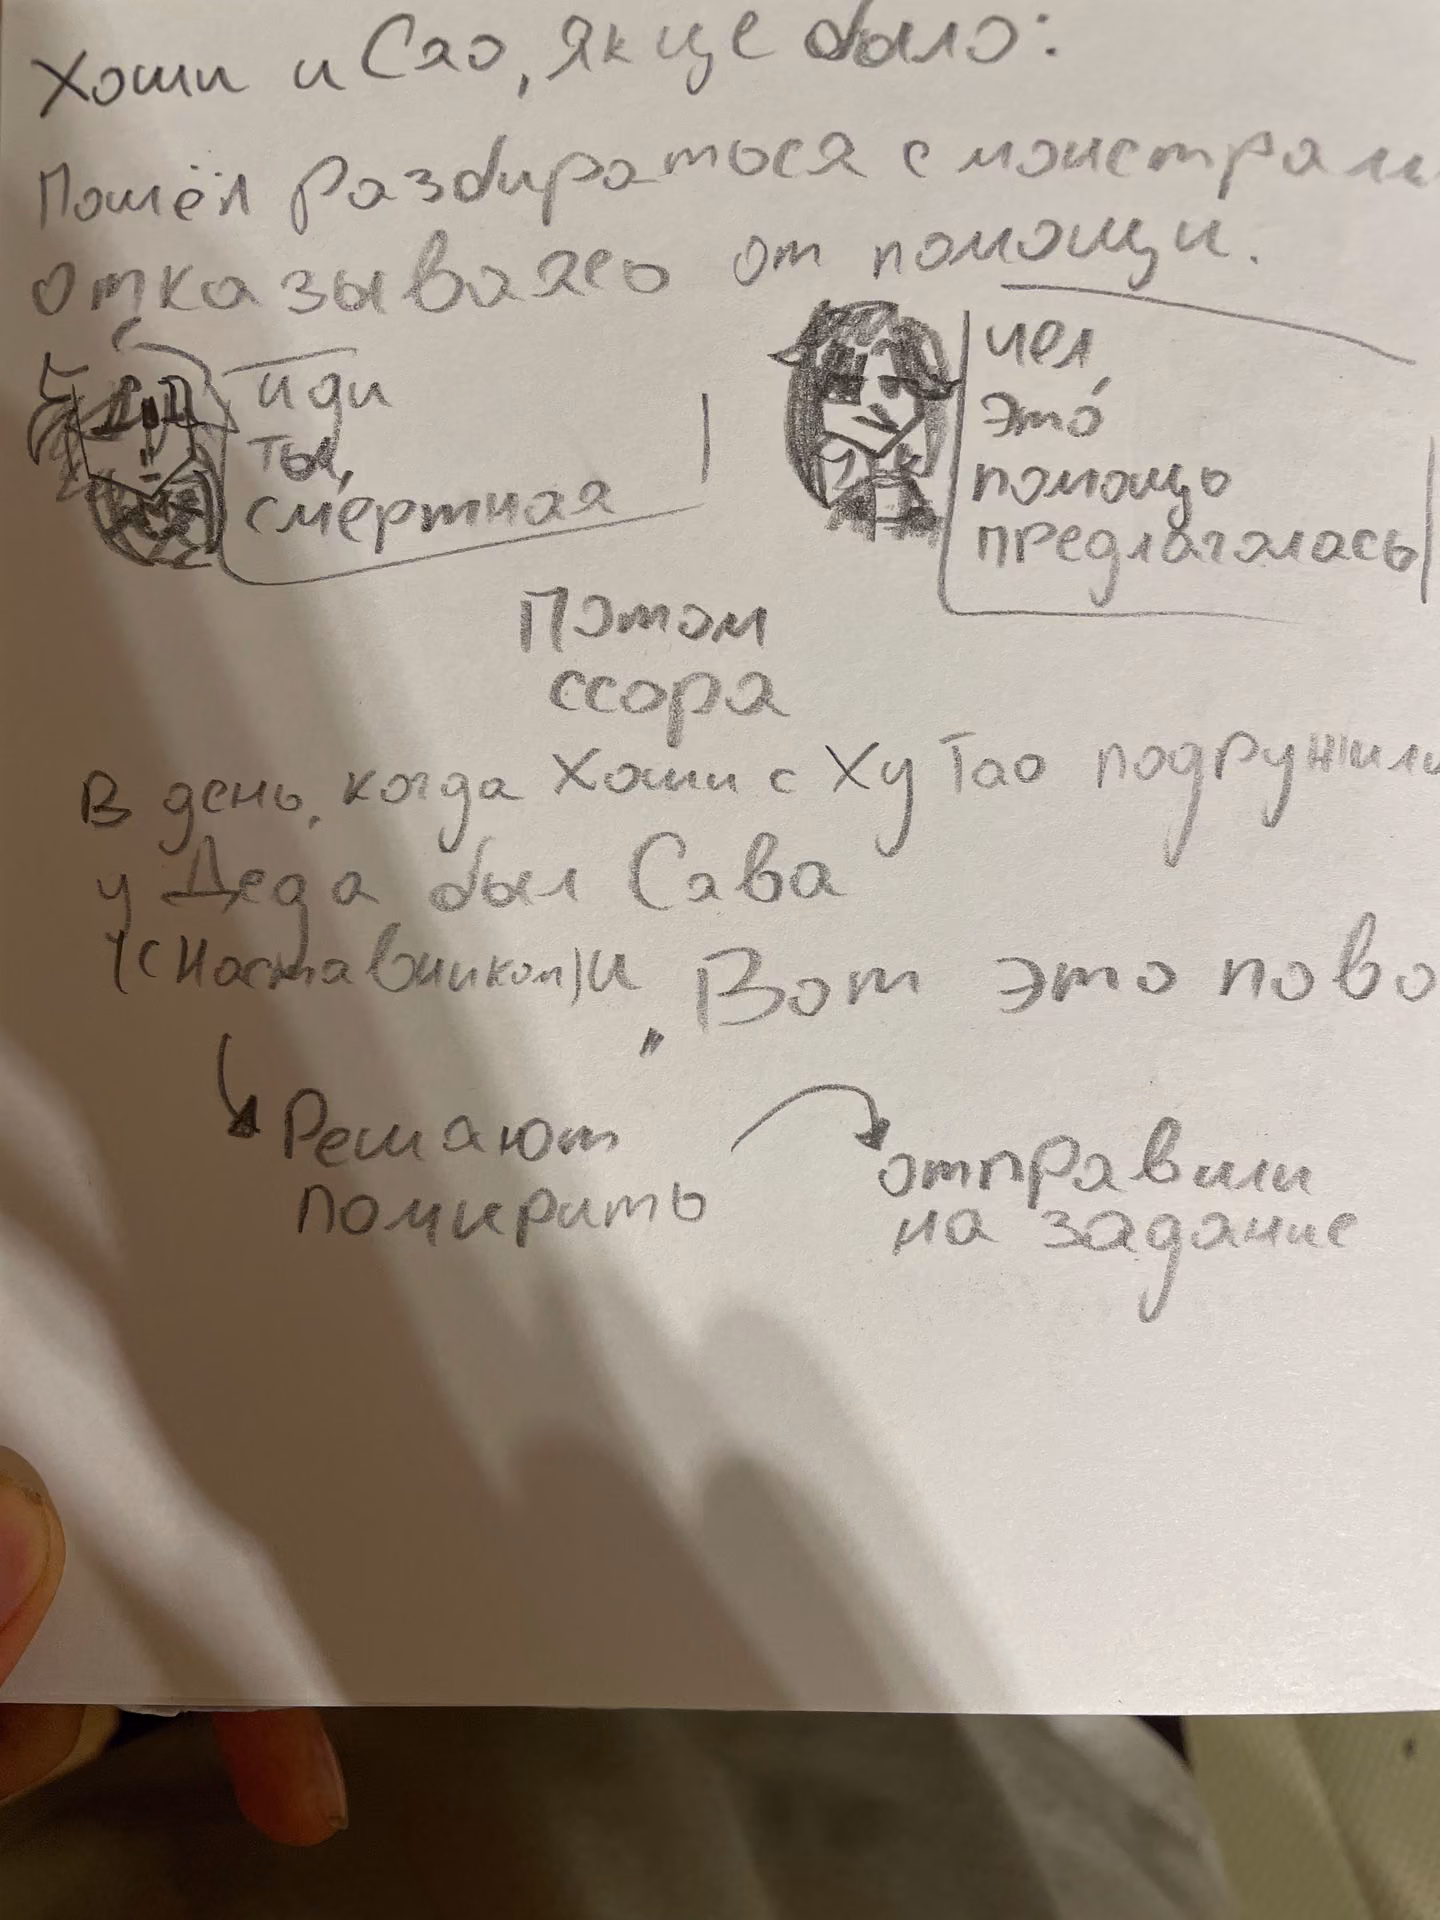 Хоши и Сяо, як це было:
Пошёл разбираться с монстрами
отказываясь от помощи.
иди
ты,
смертная
чел,
это
помощь
предлагалась
Потом
ссора
В день, когда Хоши с Ху Тао подружили
у Деда был Сява
(с Наставником) и "Вот это пово
Решают
помирить
отправили
на задание